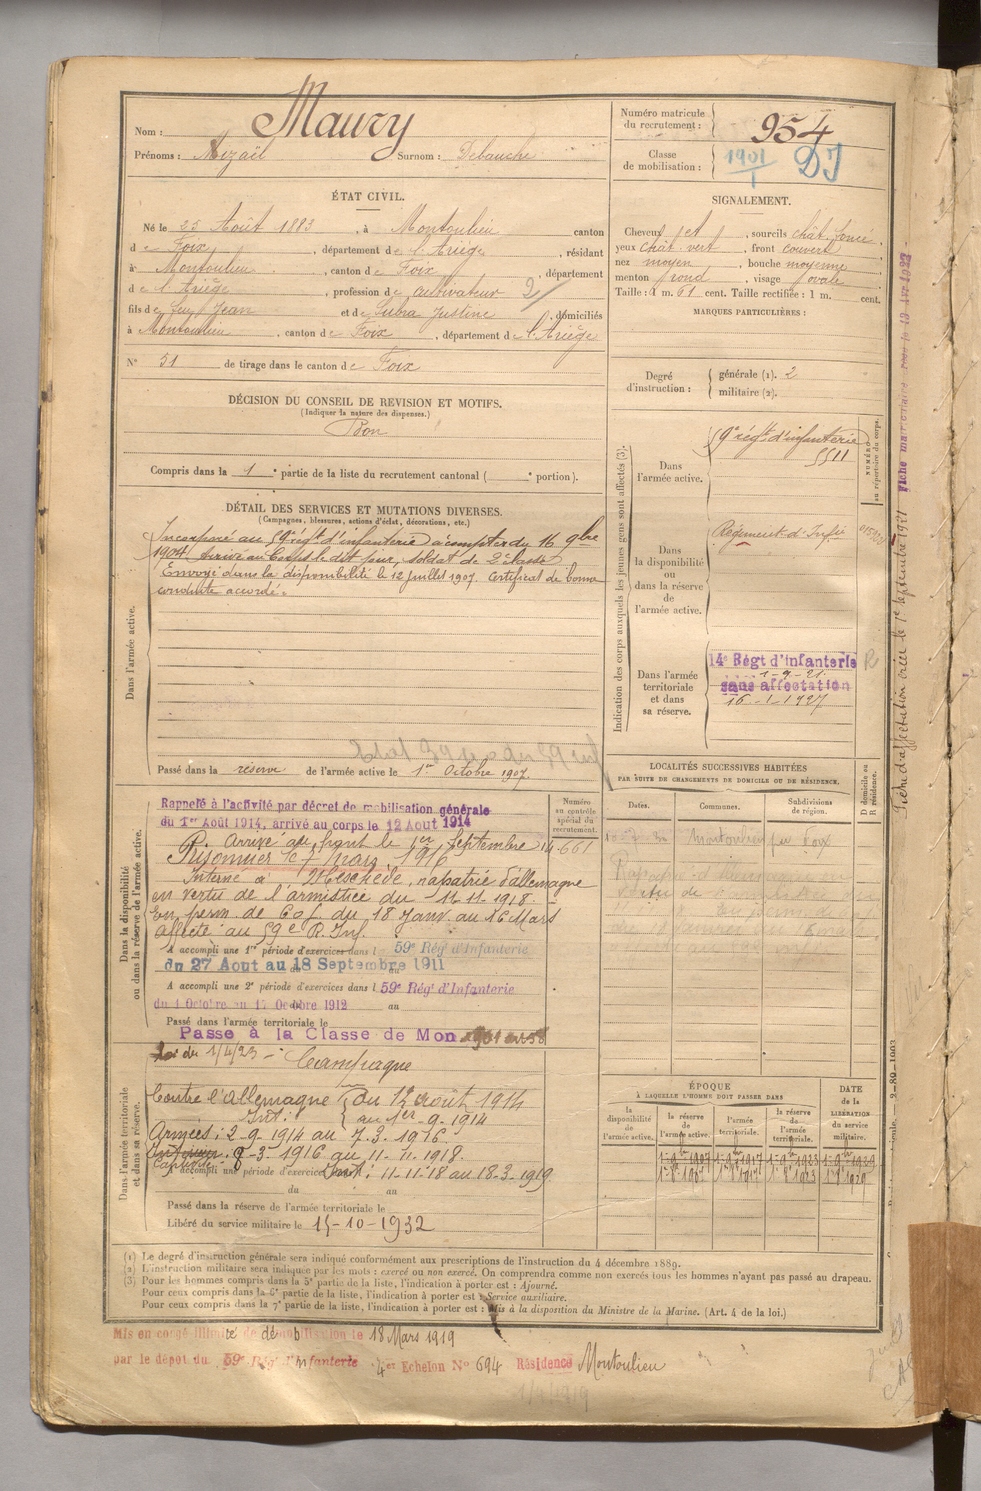 Nom : Maury
Prénoms : Mizaël Surnom : Debauche
Numéro matricule du recrutement : 954
Classe de mobilisation : 1901 DI
ÉTAT CIVIL.
Né le 25 Août 1883, à Montoulieu canton
de Foix, département de l'Ariège, résidant
à Montoulieu, canton de Foix, département
de l'Ariège, profession de cultivateur 2/
fils de feu Jean et de Subra Justine, domiciliés
à Montoulieu, canton de Foix, département de l'Ariège
N° 51 de tirage dans le canton de Foix
SIGNALEMENT.
Cheveux et sourcils chât. foncé,
yeux chât. vert, front couvert
nez moyen, bouche moyenne
menton rond, visage ovale
Taille : 1 m. 61 cent. Taille rectifiée : 1 m. cent.
MARQUES PARTICULIÈRES :
Degré d'instruction : générale (1). 2
militaire (2).
DÉCISION DU CONSEIL DE REVISION ET MOTIFS.
(Indiquer la nature des dispenses.)
Bon
Compris dans la 1e partie de la liste du recrutement cantonal ( e portion).
DÉTAIL DES SERVICES ET MUTATIONS DIVERSES.
(Campagnes, blessures, actions d'éclat, décorations, etc.)
Dans l'armée active.
Incorporé au 59e régt d'infanterie à compter du 16 9bre
1904 Arrivé au Corps le dit jour, soldat de 2e classe
Envoyé dans la disponibilité le 12 juillet 1907. Certificat de bonne
conduite accordé.
Passé dans la réserve de l'armée active le 1er Octobre 1907.
Indication des corps auxquels les jeunes gens sont affectés (3).
NUMÉRO au répertoire du corps.
Dans l'armée active.
59e régt d'infanterie
5511
Dans la disponibilité ou dans la réserve de l'armée active.
Régiment d'Infie
Dans l'armée territoriale et dans sa réserve.
14e Régt d'infanterie
1-9-21.
sans affectation
16-1-1927
R
Fiche d'affectation créée le 1er Septembre 1921
Fiche matriculaire
LOCALITÉS SUCCESSIVES HABITÉES
PAR SUITE DE CHANGEMENTS DE DOMICILE OU DE RÉSIDENCE.
Dates. Communes. Subdivisions de région. D domicile ou R résidence.
Montoulieu par Foix
Dans la disponibilité ou dans la réserve de l'armée active.
Numéro au contrôle spécial du recrutement.
Rappelé à l'activité par décret de mobilisation générale
du 1er Août 1914, arrivé au corps le 12 Aout 1914
P. Arrivé au front le 1er Septembre 14
661
Prisonnier le 7 Mars 1916
Interné à Meschède, rapatrié d'allemagne
en vertu de l'armistice du 11-11-1918.
En perm. de 60 j du 18 Janv. au 16 Mars
affecté au 59e R. Inf.
A accompli une 1re période d'exercices dans l 59e Régt d'Infanterie
du 27 Aout au 18 Septembre 1911
A accompli une 2e période d'exercices dans l 59e Régt d'Infanterie
du 1 Octobre au 17 Octobre 1912 au
Passé dans l'armée territoriale le
Passé à la Classe de Mon
Loi du 1/4/23
Dans l'armée territoriale et dans sa réserve.
Campagne
Contre l'allemagne du 12 août 1914
Int. : au 1er-9-1914
Armées : 2-9-1914 au 7.3.1916.
Captivité 8-3-1916 au 11-11-1918.
A accompli une période d'exercices Int : 11-11-18 au 18-3-1919
du au
Passé dans la réserve de l'armée territoriale le
Libéré du service militaire le 15-10-1932
ÉPOQUE
À LAQUELLE L'HOMME DOIT PASSER DANS
la disponibilité de l'armée active. la réserve de l'armée active. l'armée territoriale. la réserve de l'armée territoriale. DATE de la LIBÉRATION du service militaire.
1-9-1907 1-9-1917 1-9-1923 1-9-1929
(1) Le degré d'instruction générale sera indiqué conformément aux prescriptions de l'instruction du 4 décembre 1889.
(2) L'instruction militaire sera indiquée par les mots : exercé ou non exercé. On comprendra comme non exercés tous les hommes n'ayant pas passé au drapeau.
(3) Pour les hommes compris dans la 5e partie de la liste, l'indication à porter est : Ajourné.
Pour ceux compris dans la 6e partie de la liste, l'indication à porter est : Service auxiliaire.
Pour ceux compris dans la 7e partie de la liste, l'indication à porter est : Mis à la disposition du Ministre de la Marine. (Art. 4 de la loi.)
Mis en congé illimité de démobilisation le 18 Mars 1919
par le dépôt du 59e Régt d'Infanterie 4es Echelon N° 694 Résidence Montoulieu